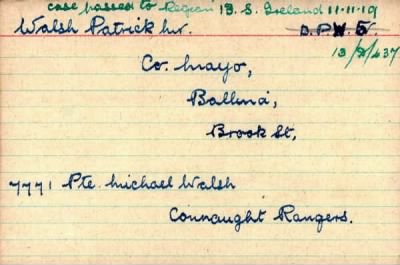 case passed to Region 13. S. Ireland 11-11-19
Walsh Patrick Mr.
D.P.W. 5.
13/8/437
Co. Mayo,
Ballina,
Brook St,
7771 Pte. Michael Walsh
Connaught Rangers.